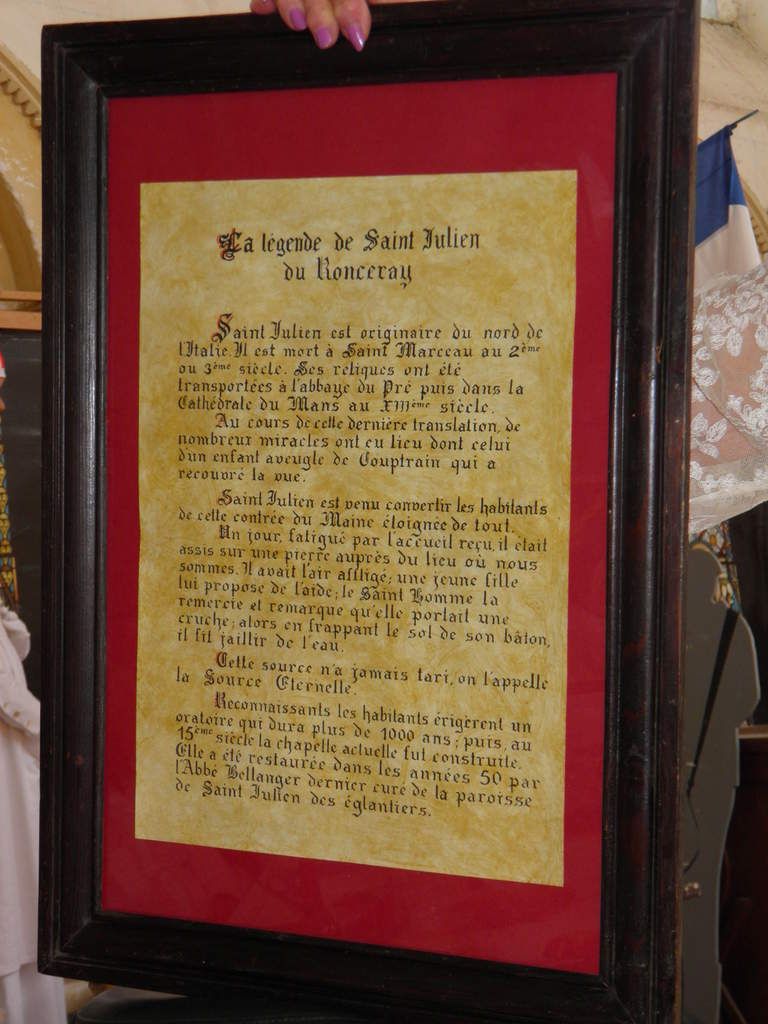 La légende de Saint Julien
du Ronceray
Saint Julien est originaire du nord de
l'Italie. Il est mort à Saint Marceau au 2ème
ou 3ème siècle. Ses reliques ont été
transportées à l'abbaye du Pré puis dans la
Cathédrale du Mans au XIIIème siècle.
Au cours de cette dernière translation, de
nombreux miracles ont eu lieu dont celui
d'un enfant aveugle de Couptrain qui a
recouvré la vue.
Saint Julien est venu convertir les habitants
de cette contrée du Maine éloignée de tout.
Un jour, fatigué par l'accueil reçu, il était
assis sur une pierre auprès du lieu où nous
sommes. Il avait l'air affligé; une jeune fille
lui propose de l'aide; le Saint Homme la
remercie et remarque qu'elle portait une
cruche; alors en frappant le sol de son bâton,
il fit jaillir de l'eau.
Cette source n'a jamais tari, on l'appelle
la Source Eternelle.
Reconnaissants les habitants érigèrent un
oratoire qui dura plus de 1000 ans; puis, au
15ème siècle la chapelle actuelle fut construite.
Elle a été restaurée dans les années 50 par
l'Abbé Bellanger dernier curé de la paroisse
de Saint Julien des églantiers.